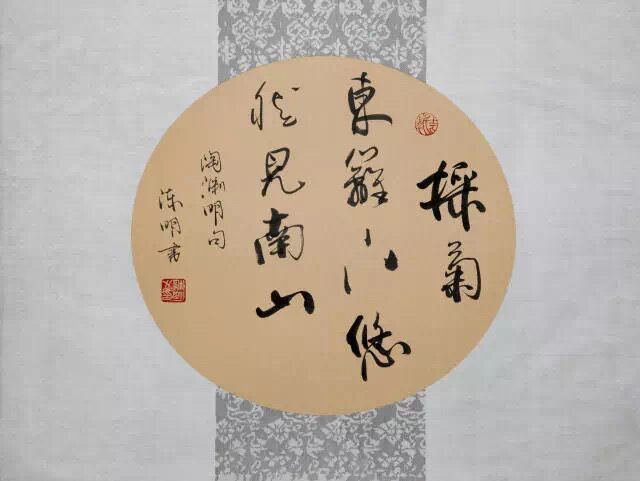 採菊
東籬下悠
然見南山
陶渊明句
陈明書